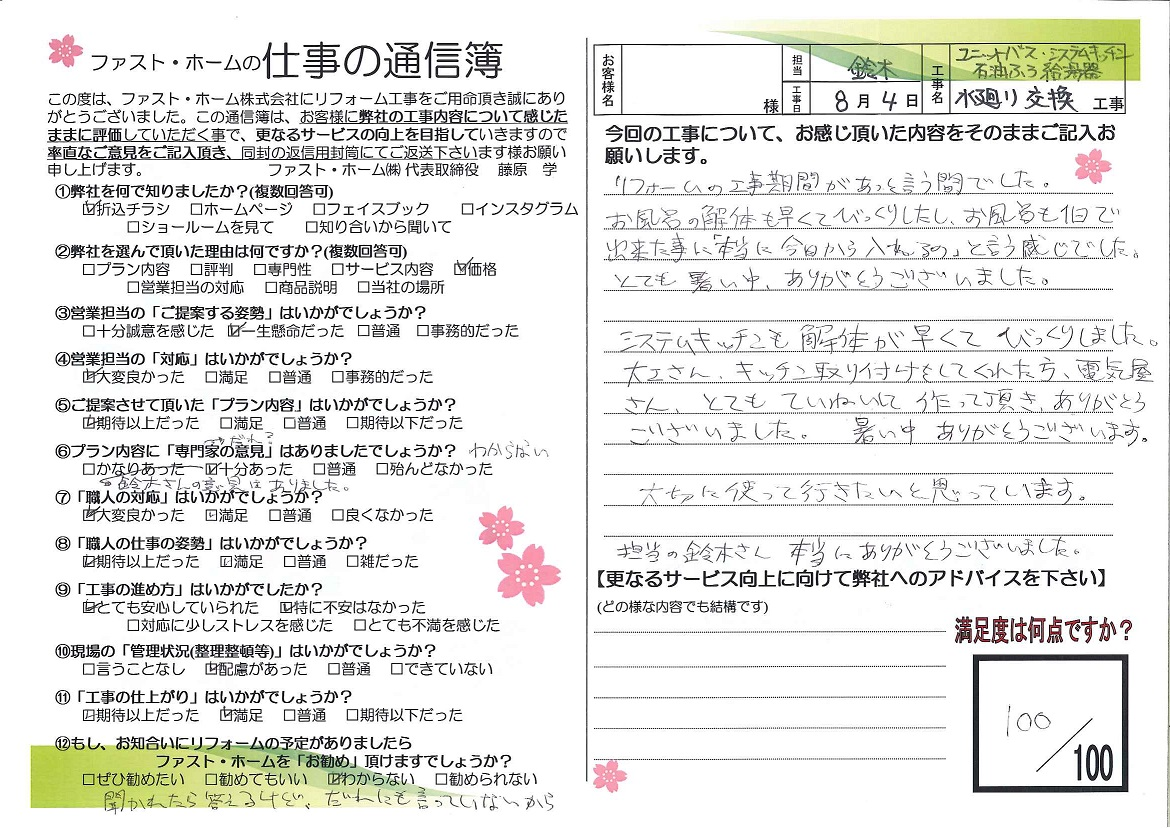 ファスト・ホームの仕事の通信簿
この度は、ファスト・ホーム株式会社にリフォーム工事をご用命頂き誠にあり
がとうございました。この通信簿は、お客様に弊社の工事内容について感じた
ままに評価していただく事で、更なるサービスの向上を目指していきますので
率直なご意見をご記入頂き、同封の返信用封筒にてご返送下さいます様お願い
申し上げます。 ファスト・ホーム㈱ 代表取締役 藤原 学
①弊社を何で知りましたか?(複数回答可)
☑折込チラシ □ホームページ □フェイスブック □インスタグラム
□ショールームを見て □知り合いから聞いて
②弊社を選んで頂いた理由は何ですか?(複数回答可)
□プラン内容 □評判 □専門性 □サービス内容 ☑価格
□営業担当の対応 □商品説明 □当社の場所
③営業担当の「ご提案する姿勢」はいかがでしょうか?
□十分誠意を感じた ☑一生懸命だった □普通 □事務的だった
④営業担当の「対応」はいかがでしょうか?
☑大変良かった □満足 □普通 □事務的だった
⑤ご提案させて頂いた「プラン内容」はいかがでしょうか?
☑期待以上だった □満足 □普通 □期待以下だった
だれ?
⑥プラン内容に「専門家の意見」はありましたでしょうか? わからない
□かなりあった ☑十分あった □普通 □殆んどなかった
鈴木さんの意見はありました。
⑦「職人の対応」はいかがでしょうか?
☑大変良かった □満足 □普通 □良くなかった
⑧「職人の仕事の姿勢」はいかがでしょうか?
☑期待以上だった ☑満足 □普通 □雑だった
⑨「工事の進め方」はいかがでしたか?
☑とても安心していられた ☑特に不安はなかった
□対応に少しストレスを感じた □とても不満を感じた
⑩現場の「管理状況(整理整頓等)」はいかがでしょうか?
□言うことなし ☑配慮があった □普通 □できていない
⑪「工事の仕上がり」はいかがでしょうか?
☑期待以上だった ☑満足 □普通 □期待以下だった
⑫もし、お知合いにリフォームの予定がありましたら
ファスト・ホームを「お勧め」頂けますでしょうか?
□ぜひ勧めたい □勧めてもいい ☑わからない □勧められない
聞かれたら答えるけど、だれにも言っていないから
お客様名 様
担当 鈴木
工事日 8月4日
工事名 ユニットバス・システムキッチン
石油ふろ給湯器
水廻り交換 工事
今回の工事について、お感じ頂いた内容をそのままご記入お
願いします。
リフォームの工事期間があっと言う間でした。
お風呂の解体も早くてびっくりしたし、お風呂も1日で
出来た事に「本当に今日から入れるの」と言う感じでした。
とても暑い中、ありがとうございました。
システムキッチンも解体が早くてびっくりしました。
大工さん、キッチン取り付けをしてくれた方、電気屋
さん、とてもていねいに作って頂き、ありがとう
ございました。 暑い中ありがとうございます。
大切に使って行きたいと思っています。
担当の鈴木さん 本当にありがとうございました。
【更なるサービス向上に向けて弊社へのアドバイスを下さい】
(どの様な内容でも結構です)
満足度は何点ですか?
100/100